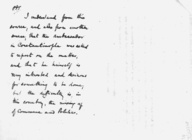 I understand from this
source, and also from another
source, that the Ambassador
in Constantinople was asked
to report on the matter,
and that he himself is
very interested and desirous
for something to be done,
but the difficulty is, in
this country, the moving of
of Commerce and Politics.